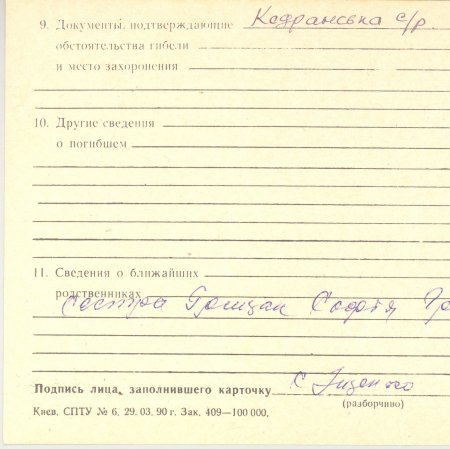 9. Документы, подтверждающие Кодранська с/р
обстоятельства гибели
и место захоронения
10. Другие сведения
о погибшем
11. Сведения о ближайших
родственниках
сестра Грищак Софія
Подпись лица, заполнившего карточку
(разборчиво)
Киев, СПТУ № 6, 29. 03. 90 г. Зак. 409—100 000.